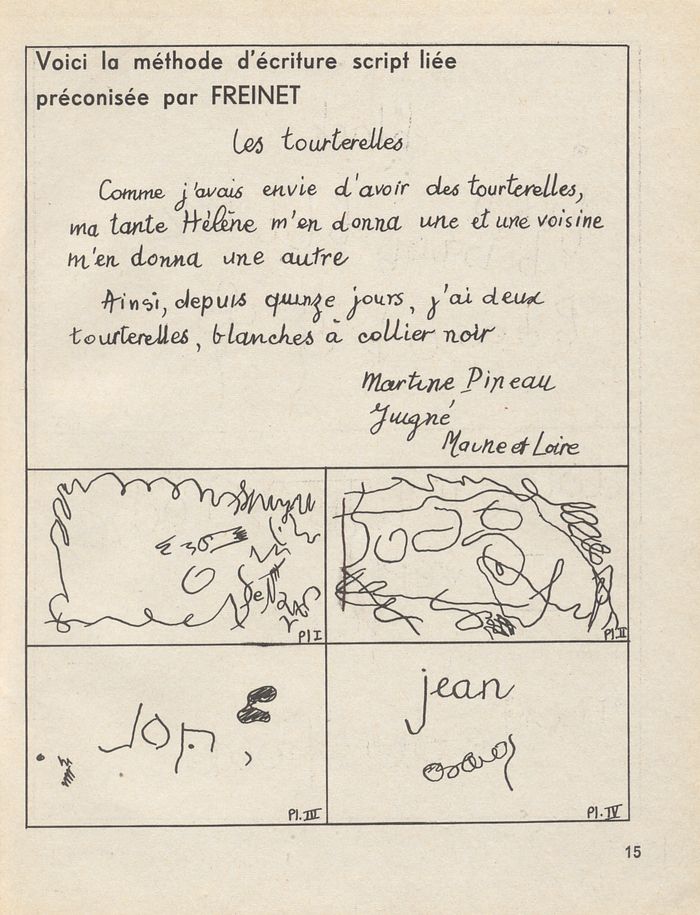 Voici la méthode d'écriture script liée
préconisée par FREINET
Les tourterelles
Comme j'avais envie d'avoir des tourterelles,
ma tante Hélène m'en donna une et une voisine
m'en donna une autre
Ainsi, depuis quinze jours, j'ai deux
tourterelles, blanches à collier noir
Martine Pineau
Juigné
Maine et Loire
Pl I
Pl. II
Pl. III
jean
Pl. IV
15